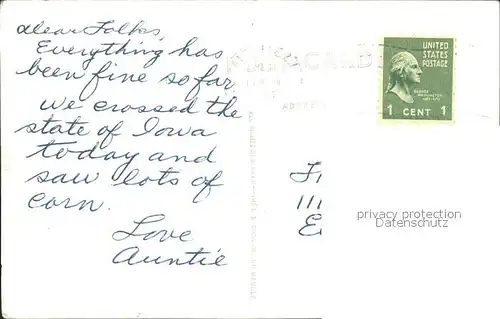 Dear Folks,
Everything has
been fine so far
we crossed the
state of Iowa
today and
saw lots of
corn.
Love
Auntie
UNITED
STATES
POSTAGE
GEORGE
WASHINGTON
1 CENT 1
111
privacy protection
Datenschutz